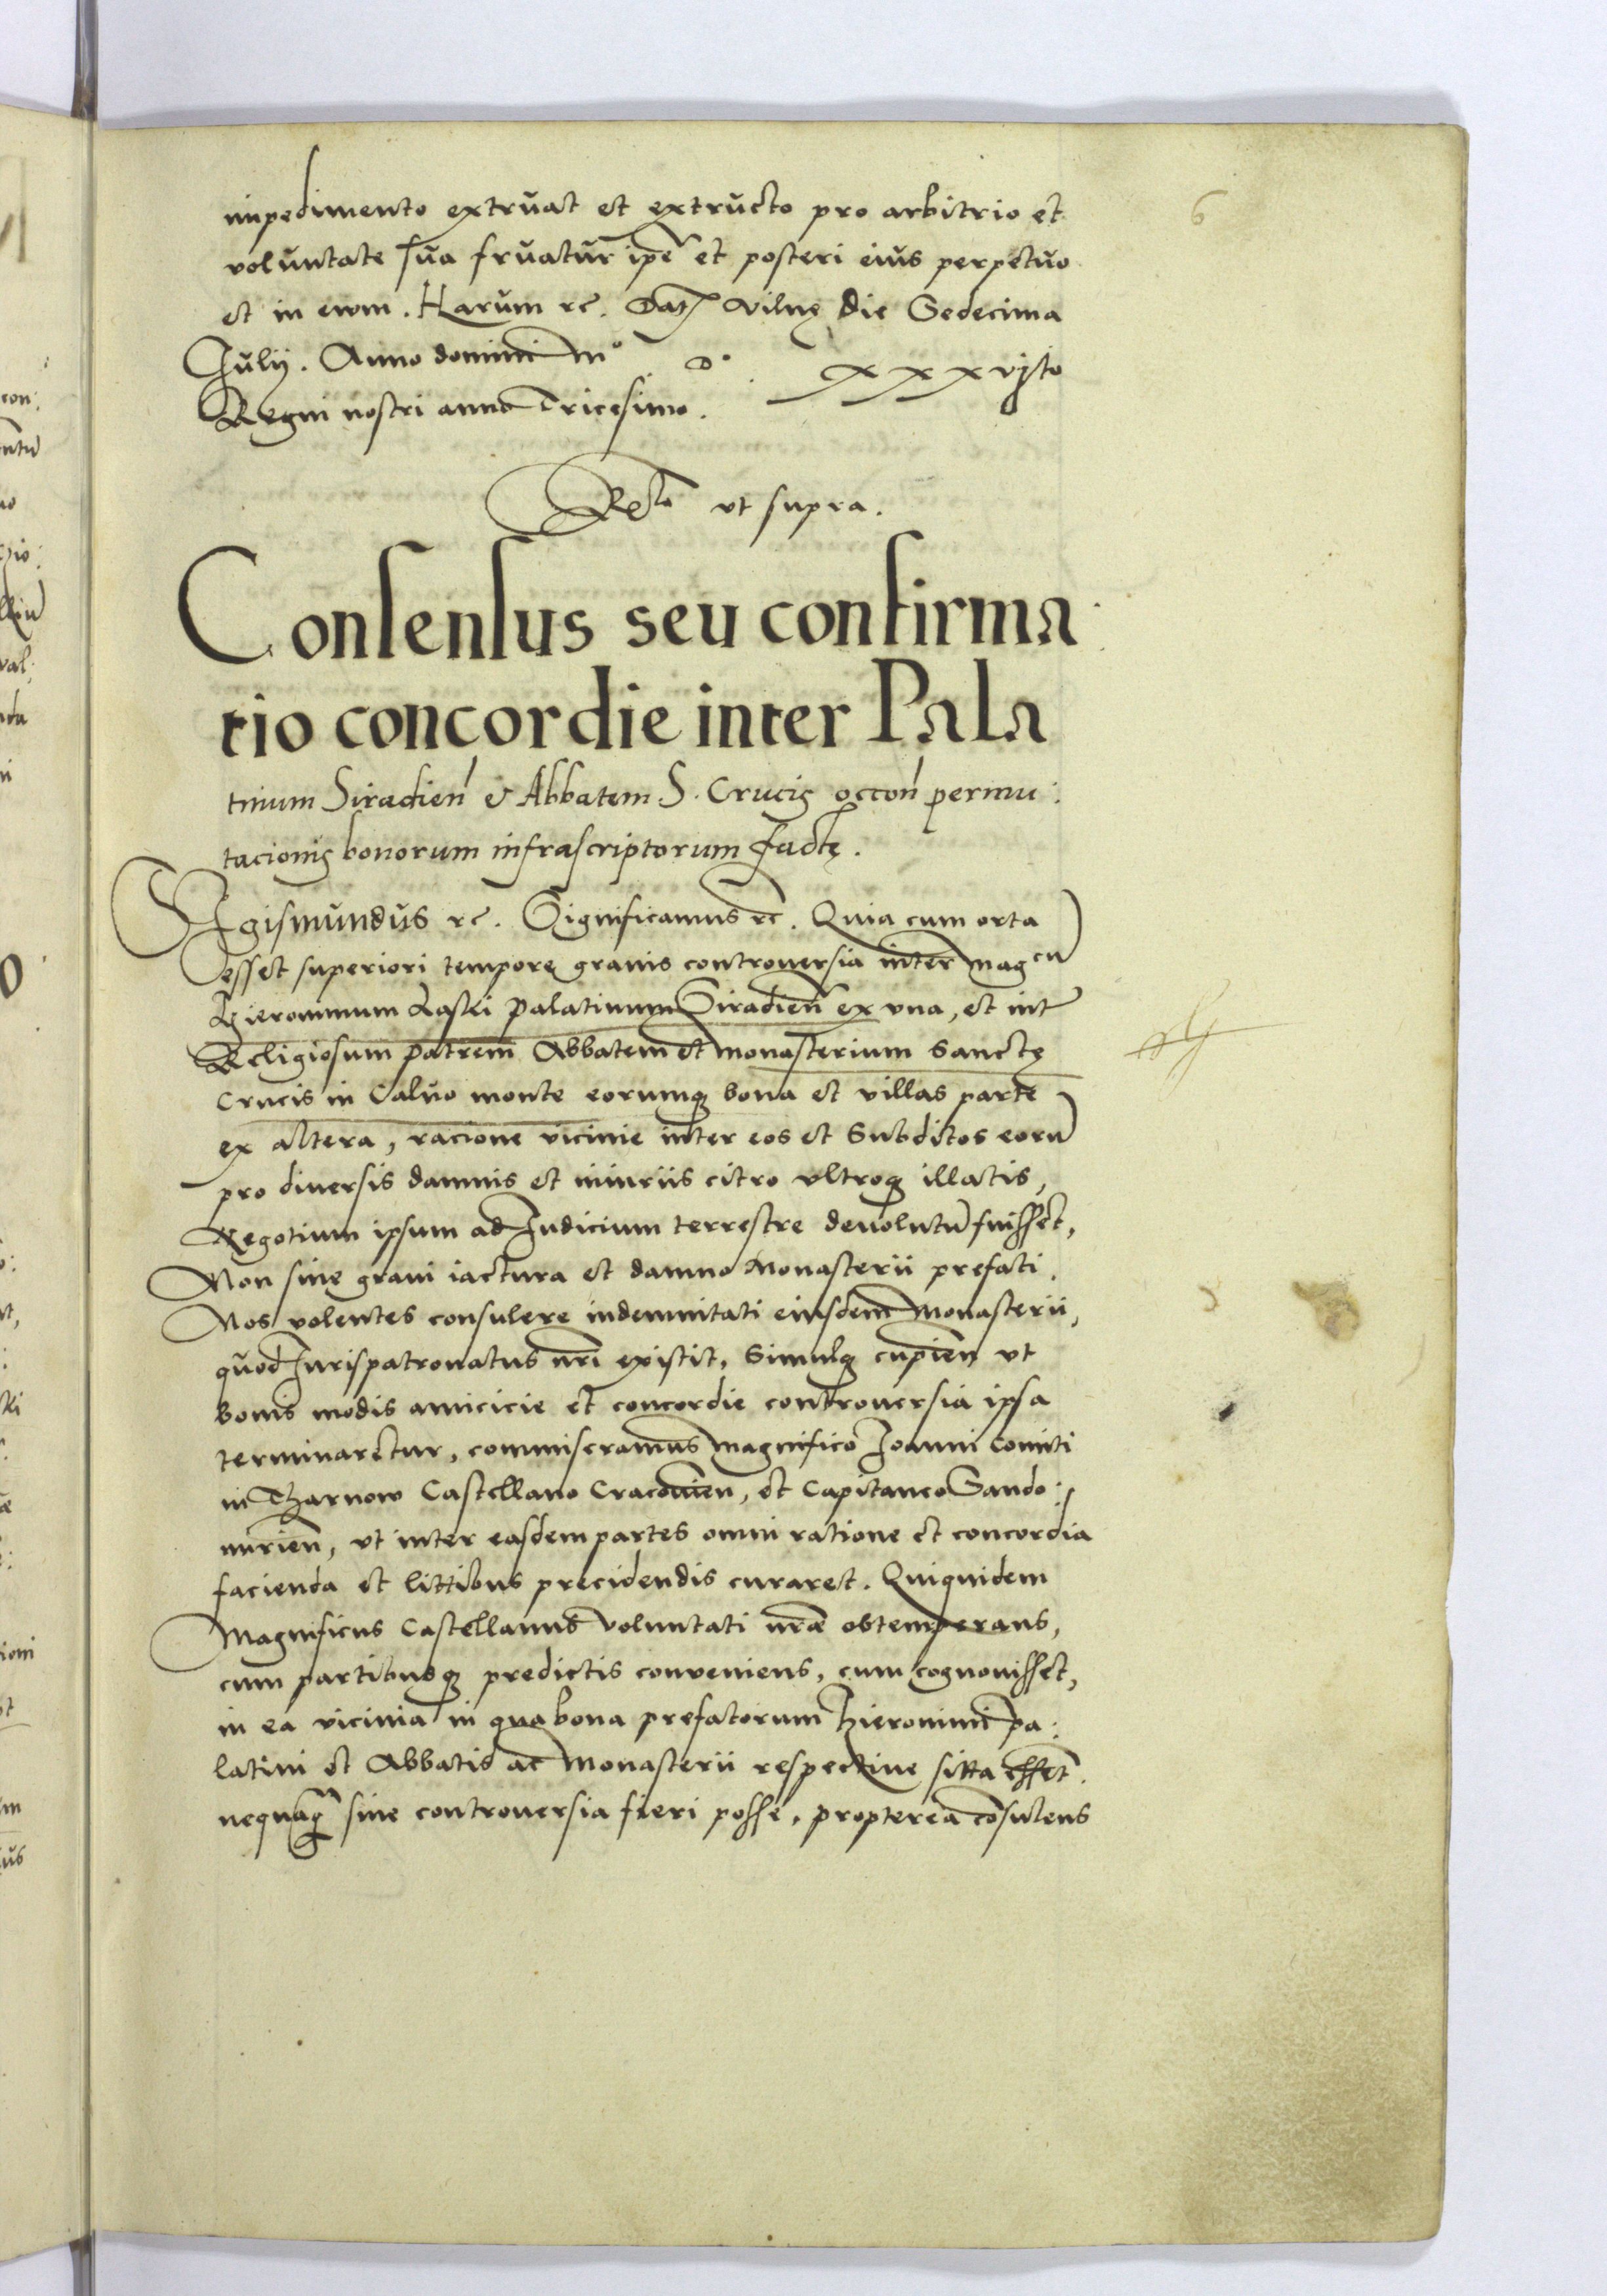 6
impedimento extruat et extructo pro arbitrio et
voluntate sua fruatur ipē et posteri eius perpetuo
et in ewm. Harum rc. Datʒ Vilnę die Sedecima
Iulij. Anno domini mº dº xxxvjto
Regni nostri anno Tricesimo.
Rełto vt supra.
Consensus seu confirma
tio concordie inter Pala
tinum Siradien̄ & Abbatem S. Crucis occon̄ permu:
tacionis bonorum infrascriptorum factę.
Sigismundus rc. Significamus rc. Quia cum orta
esset superiori tempore grauis controuersia inter magcū
Hieronimum Laski Palatinum Siradien̄ ex vna, et int̄
Religiosum patrem Abbatem et monasterium Sanctę
Crucis in Caluo monte eorumqȝ bona et villas parte
ex altera, racione vicinie inter eos et Subditos eorū
pro diuersis damnis et iniuriis citro vltroqȝ illatis,
Negotium ipsum ad Iudicium terrestre deuolutū fuisset,
Non sine graui iactura et damno Monasterii prefati.
Nos volentes consulere indemnitati eiusdem Monasterii,
quod Iurispatronatus nr̄i existit, Simulqȝ cupien̄ vt
bonis modis amicicie et concordie controuersia ipsa
terminaretur, commiseramus Magnifico Ioanni Comiti
in Tharnow Castellano Cracouien̄, et Capitaneo Sando:
mirien̄, vt inter easdem partes omni ratione et concordia
facienda et littibus precidendis curaret. Quiquidem
Magnificus Castellanus voluntati nr̄æ obtemperans,
cum partibusqȝ predictis conveniens, cum cognouisset,
in ea vicinia in qua bona prefatorum Hieronimi Pa:
latini et Abbatis ac Monasterii respectiue sitta essent.
nequāqȝ sine controuersia fieri posse, propterea cōsulens